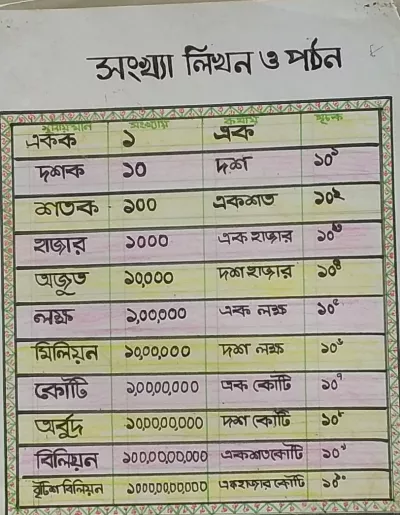 সংখ্যা লিখন ও পঠন
স্থানীয়মান সংখ্যায় কথায় সূচক
একক ১ এক
দশক ১০ দশ ১০¹
শতক ১০০ একশত ১০²
হাজার ১০০০ এক হাজার ১০³
অজুত ১০,০০০ দশ হাজার ১০⁴
লক্ষ ১,০০,০০০ এক লক্ষ ১০⁵
মিলিয়ন ১০,০০,০০০ দশ লক্ষ ১০⁶
কোটি ১,০০,০০,০০০ এক কোটি ১০⁷
অর্বুদ ১০,০০,০০,০০০ দশ কোটি ১০⁸
বিলিয়ন ১০০,০০,০০,০০০ একশতকোটি ১০⁹
বৃটিশ বিলিয়ন ১০০০,০০,০০,০০০ একহাজার কোটি ১০¹⁰